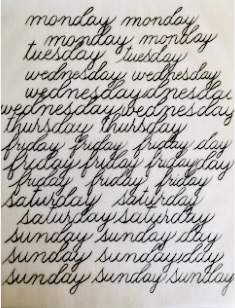 monday monday
monday monday
tuesday tuesday
wednesday wednesday
wednesday wednesday
wednesday wednesday
thursday thursday
friday friday friday day
friday friday friday day
friday friday friday
saturday saturday
saturday saturday
sunday sunday day
sunday sunday day
sunday sunday sunday